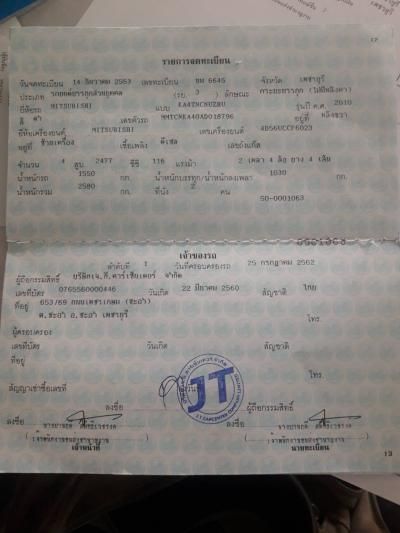 12
รายการจดทะเบียน
วันจดทะเบียน 14 ธันวาคม 2553 เลขทะเบียน บม 6645 จังหวัด เพชรบุรี
ประเภท รถยนต์บรรทุกส่วนบุคคล (รย. 3 ) ลักษณะ กระบะบรรทุก
ยี่ห้อรถ MITSUBISHI แบบ KA4TNCNUZRU รุ่นปี ค.ศ. 2010
สี ดำ เลขตัวรถ MMTCNKA40AD018796 อยู่ที่
ยี่ห้อเครื่องยนต์ MITSUBISHI เลขเครื่องยนต์ 4D56UCCF6023
อยู่ที่ ซ้ายเครื่อง เชื้อเพลิง ดีเซล เลขถังแก๊ส
จำนวน 4 สูบ 2477 ซีซี 116 แรงม้า 2 เพลา 4 ล้อ ยาง 4 เส้น
น้ำหนักรถ 1550 กก. น้ำหนักบรรทุก/น้ำหนักลงเพลา 1030 กก.
น้ำหนักรวม 2580 กก. ที่นั่ง 2 คน
50-0001063
เจ้าของรถ
ลำดับที่ 1 วันที่ครอบครองรถ 25 กรกฎาคม 2562
ผู้ถือกรรมสิทธิ์ บริษัทเจ.ที.คาร์เซ็นเตอร์ จำกัด
เลขที่บัตร 0765560000446 วันเกิด 22 มีนาคม 2560 สัญชาติ ไทย
ที่อยู่ 653/69 ถนนเพชรเกษม (ชะอำ)
ต.ชะอำ อ.ชะอำ เพชรบุรี โทร.
ผู้ครอบครอง
เลขที่บัตร วันเกิด สัญชาติ
ที่อยู่
โทร.
สัญญาเช่าซื้อเลขที่
JT
ลงชื่อ ผู้ถือกรรมสิทธิ์
ลงชื่อ ลงชื่อ
เจ้าหน้าที่ นายทะเบียน
13